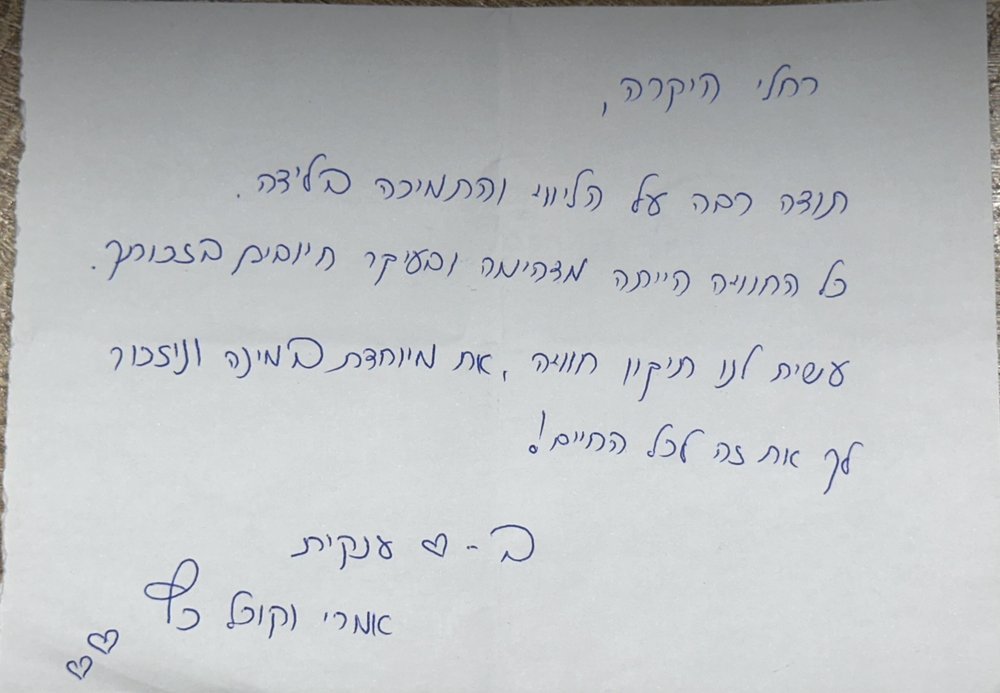 רחלי היקרה,
תודה רבה על הליווי והתמיכה בלידה.
כל החוויה הייתה מדהימה ובעיקר חיובית בזכותך.
עשית לנו תיקון חוויה, את מיוחדת במינה וניזכור
לך את זה לכל החיים!
ב-♡ ענקית
אמרי וקורל כץ